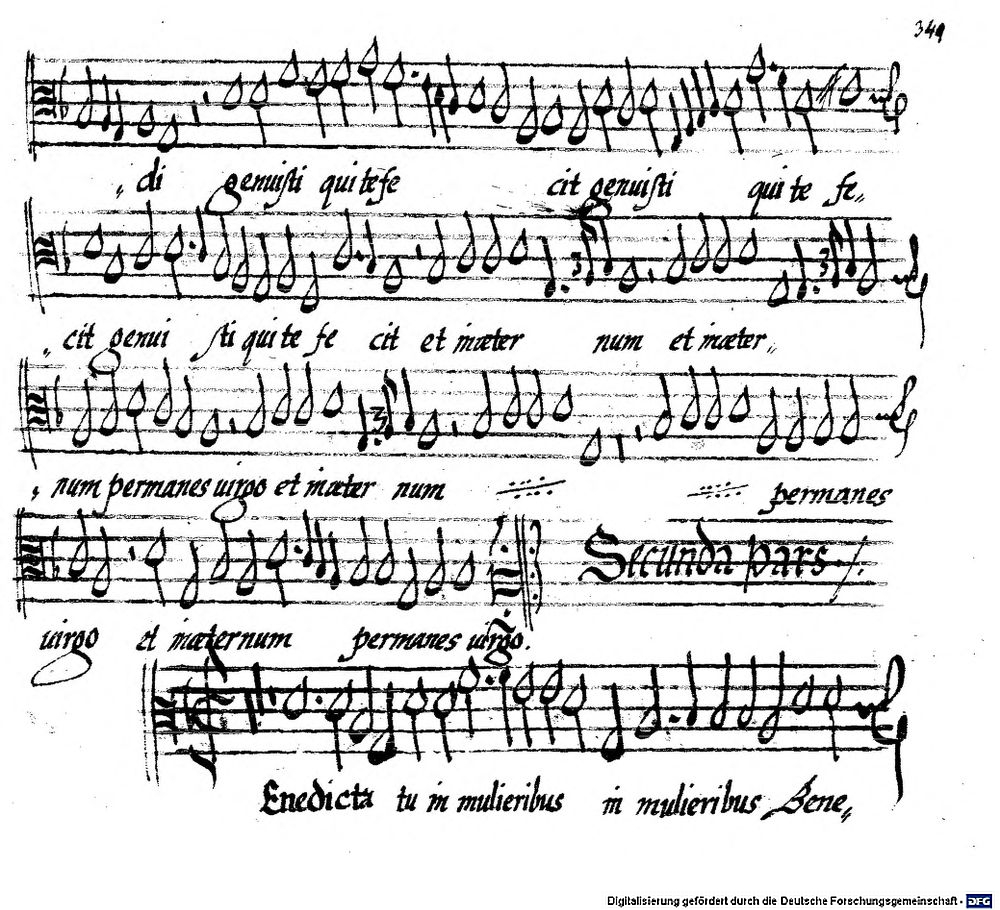 349
„ di genuisti qui te fe cit genuisti qui te fe„
„ cit genui sti qui te fe cit et in æter num et in æter„
„ num permanes uirgo et in æter num permanes
Secunda pars
uirgo et in æternum permanes uirgo.
Enedicta tu in mulieribus in mulieribus Bene„
Digitalisierung gefördert durch die Deutsche Forschungsgemeinschaft - DFG